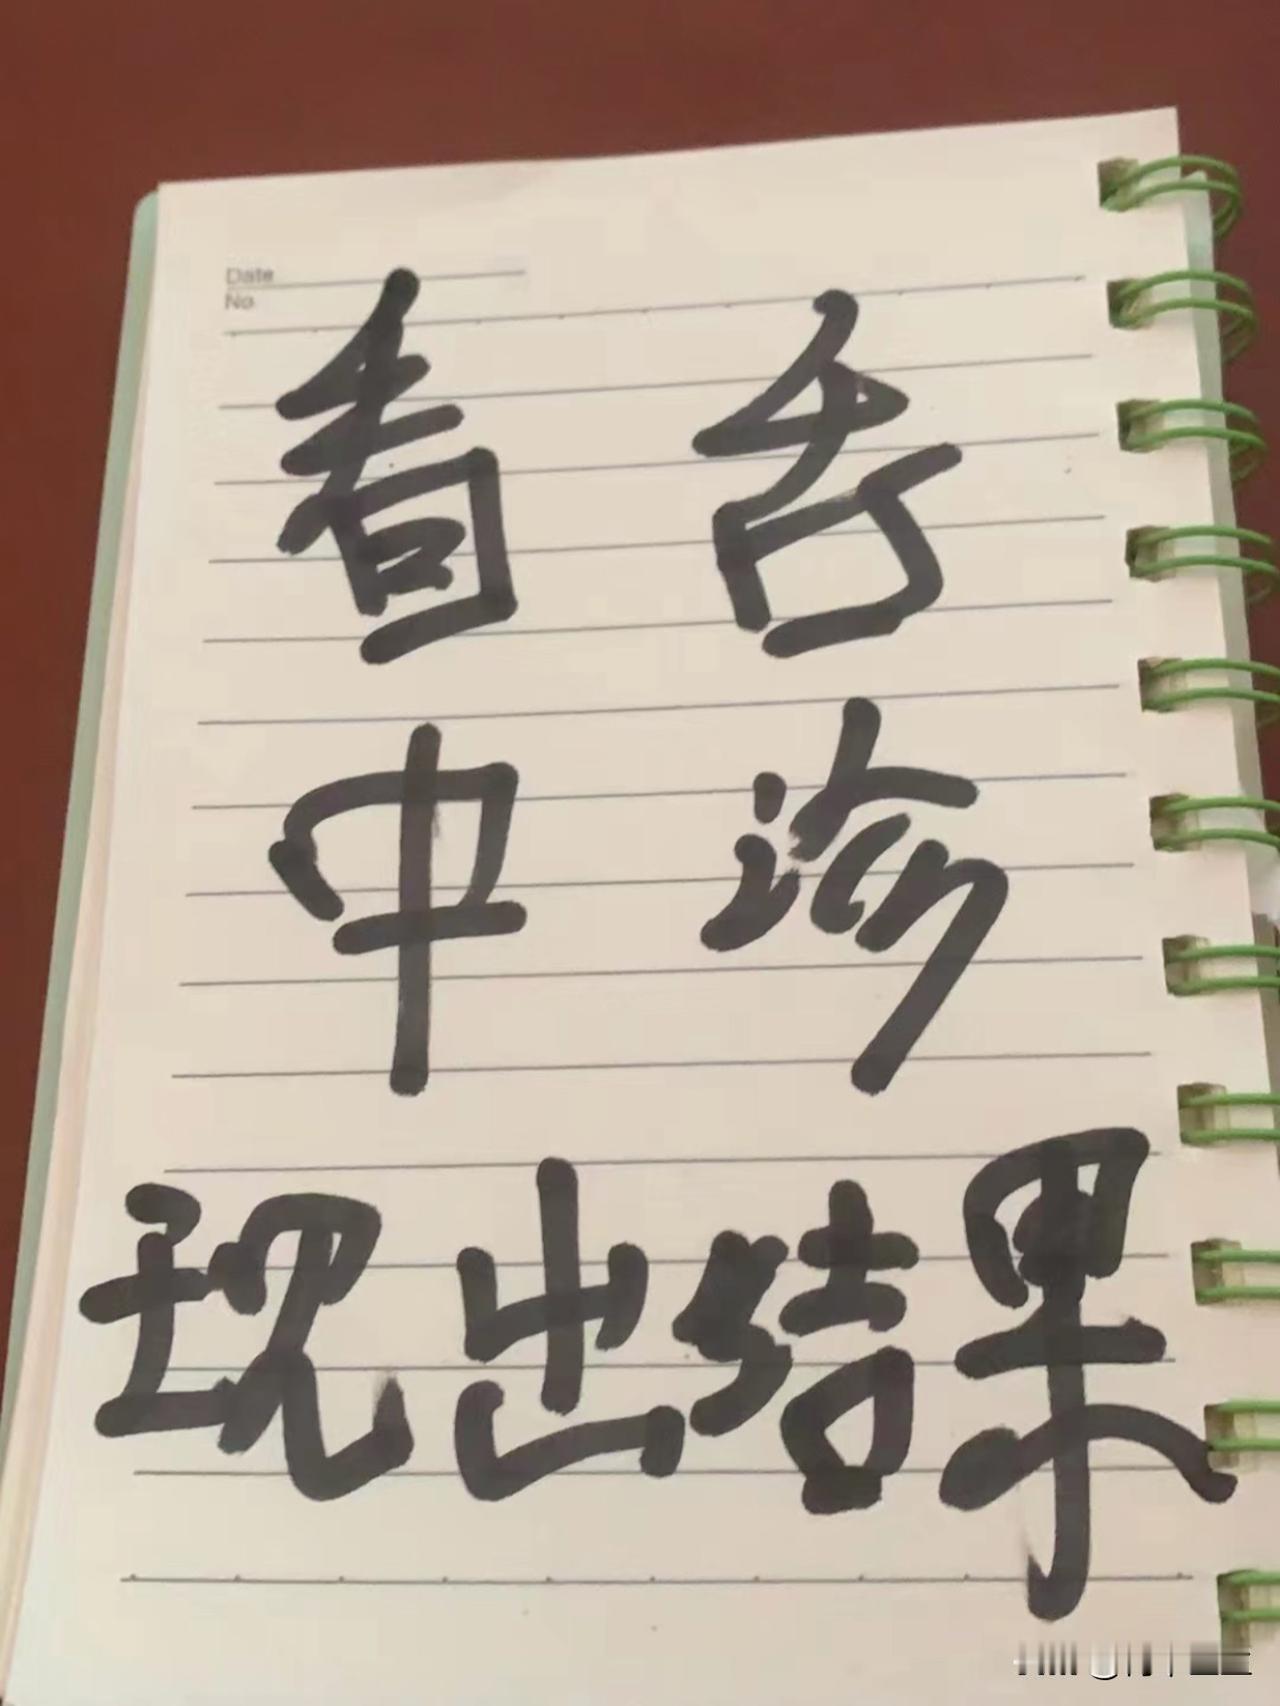 Date
No
看舌
中诊
现出结果